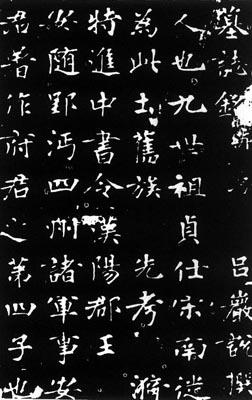 墓誌銘 呂巖說撰
人也九世祖貞仕宋南徙
為此土舊族 先考漪
特進中書令漢陽郡王
安隨郢沔四州諸軍事安
君著作府君之第四子也